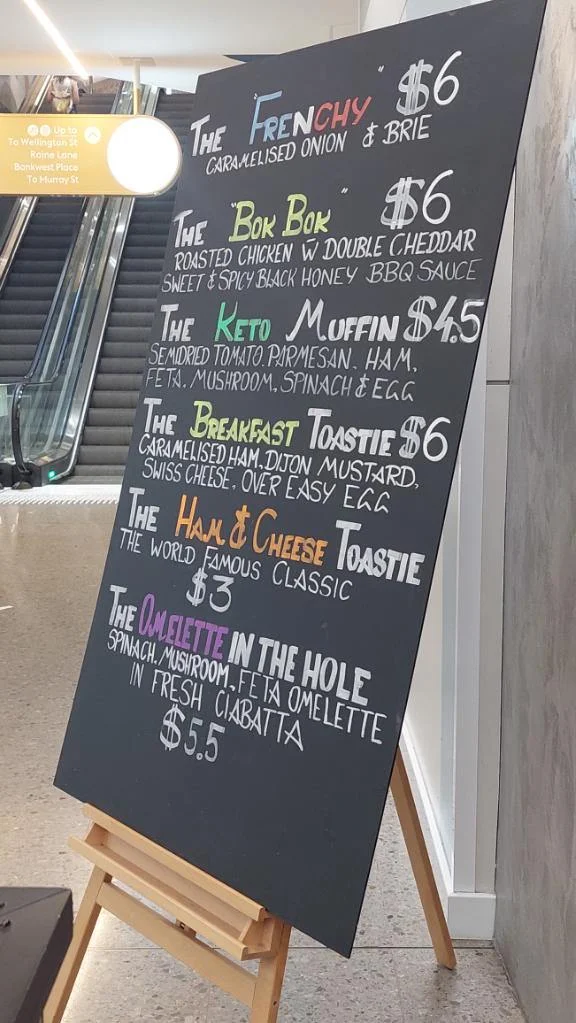 Up to
To Wellington St
Raine Lane
Bankwest Place
To Murray St
THE "FRENCHY" $6
CARAMELISED ONION & BRIE
THE "BOK BOK" $6
ROASTED CHICKEN W DOUBLE CHEDDAR
SWEET & SPICY BLACK HONEY BBQ SAUCE
THE KETO MUFFIN $4.5
SEMIDRIED TOMATO, PARMESAN, HAM,
FETA, MUSHROOM, SPINACH & EGG
THE BREAKFAST TOASTIE $6
CARAMELISED HAM, DIJON MUSTARD,
SWISS CHEESE, OVER EASY EGG
THE HAM & CHEESE TOASTIE
THE WORLD FAMOUS CLASSIC
$3
THE OMELETTE IN THE HOLE
SPINACH, MUSHROOM, FETA OMELETTE
IN FRESH CIABATTA
$5.5